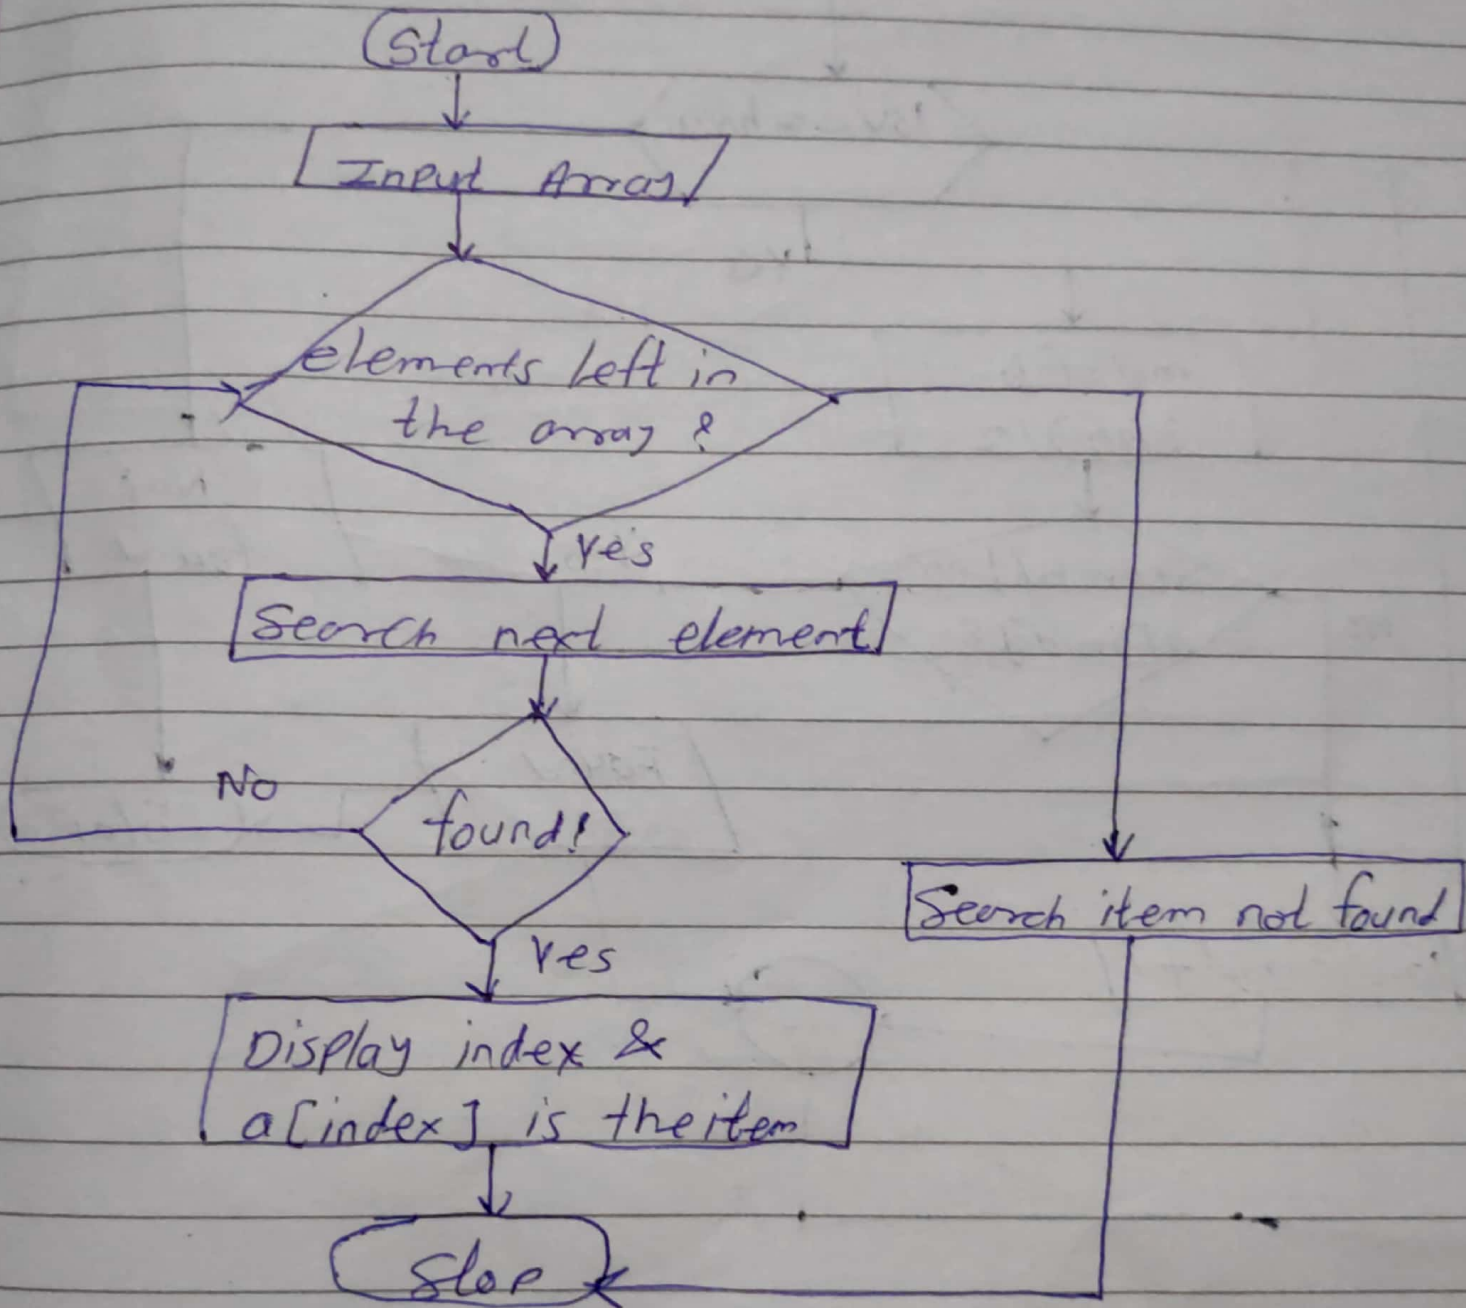 Start
Input Array
elements left in
the array ?
Yes
Search next element
No
found!
Search item not found
Yes
Display index &
a[index] is the item
Stop